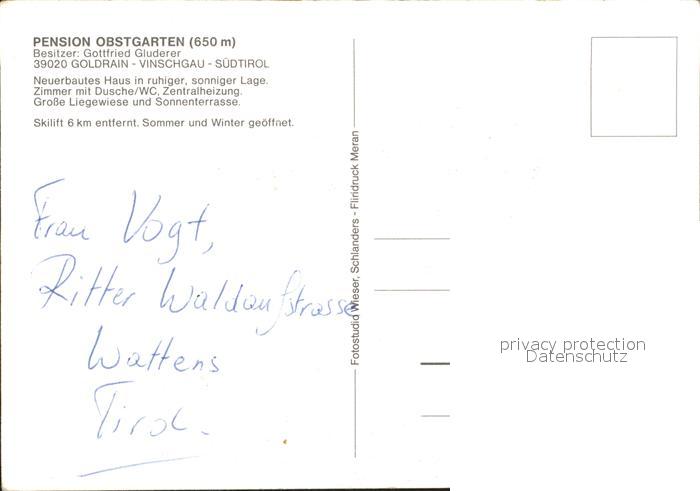 PENSION OBSTGARTEN (650 m)
Besitzer: Gottfried Gluderer
39020 GOLDRAIN - VINSCHGAU - SÜDTIROL
Neuerbautes Haus in ruhiger, sonniger Lage.
Zimmer mit Dusche/WC, Zentralheizung.
Große Liegewiese und Sonnenterrasse.
Skilift 6 km entfernt. Sommer und Winter geöffnet.
Frau Vogt,
Ritter Waldaufstrasse
Wattens
Tirol.
Fotostudio Wieser, Schlanders - Fliridruck Meran
privacy protection
Datenschutz